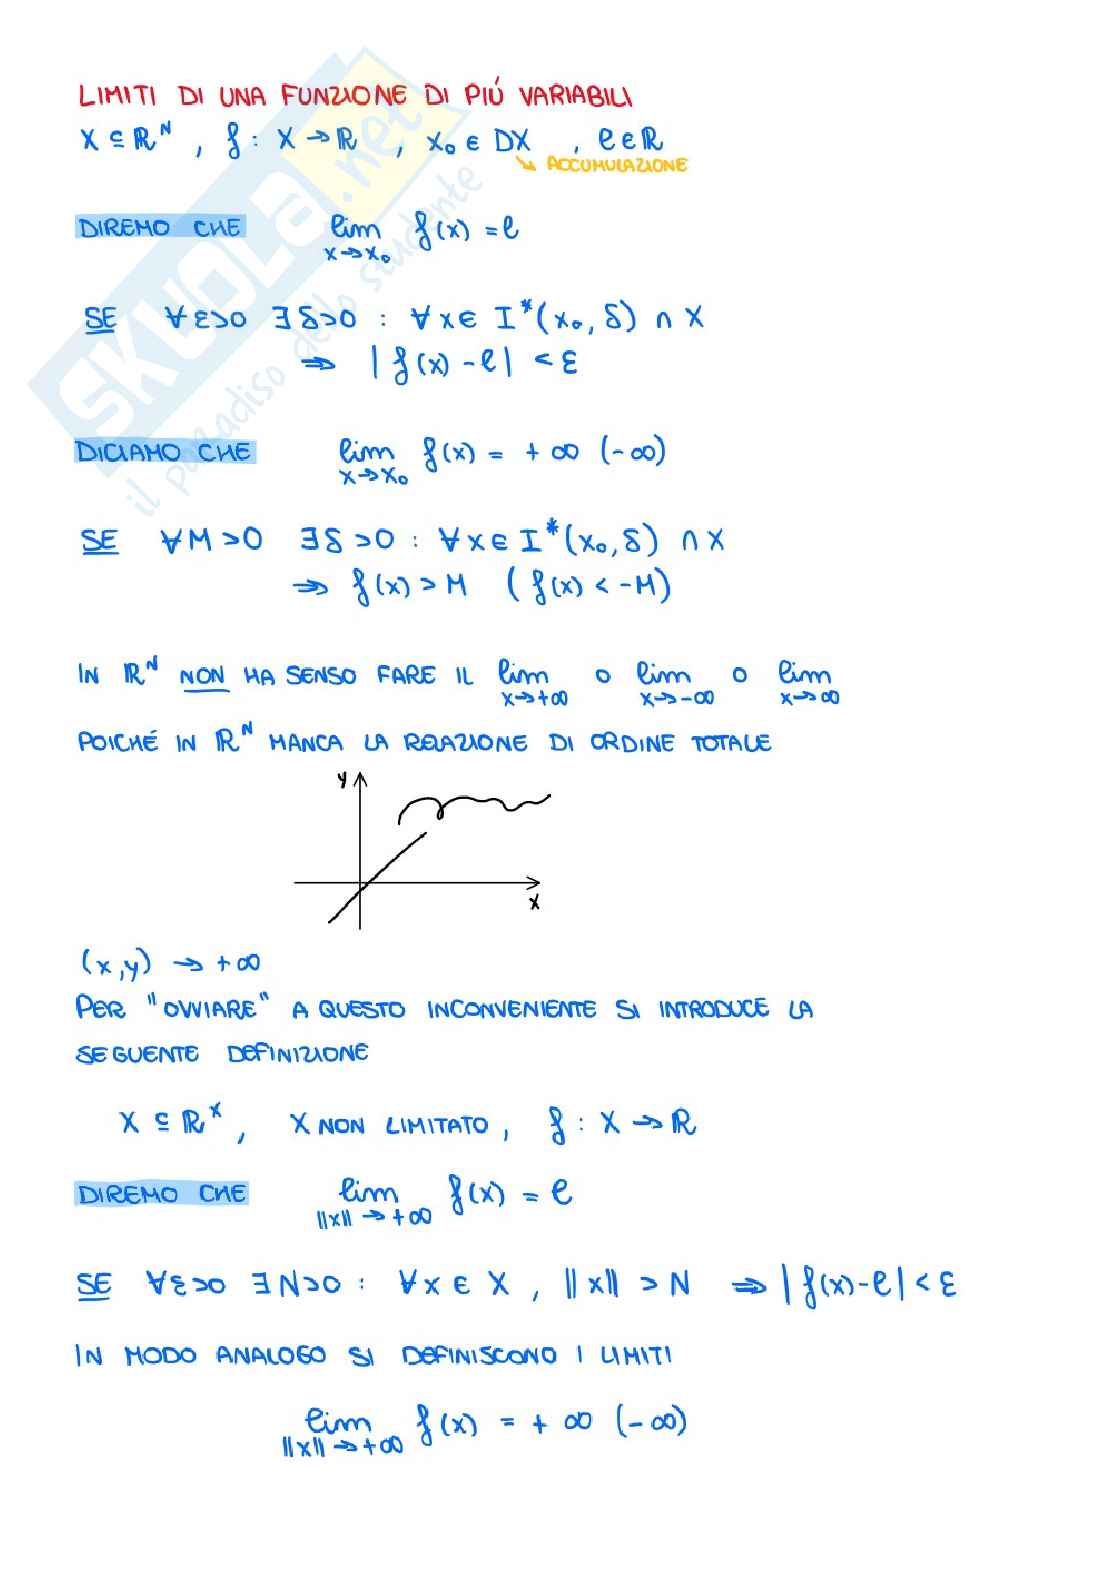 LIMITI DI UNA FUNZIONE DI PIÚ VARIABILI
X ⊆ ℝᴺ , f : X → ℝ , x₀ ∈ DX , ℓ ∈ ℝ
↘ ACCUMULAZIONE
DIREMO CHE lim f(x) = ℓ
x→x₀
SE ∀ε>0 ∃δ>0 : ∀x∈ I*(x₀, δ) ∩ X
⇒ |f(x) - ℓ| < ε
DICIAMO CHE lim f(x) = +∞ (-∞)
x→x₀
SE ∀M>0 ∃δ>0 : ∀x∈ I*(x₀, δ) ∩ X
⇒ f(x) > M (f(x) < -M)
IN ℝᴺ NON HA SENSO FARE IL lim o lim o lim
x→+∞ x→-∞ x→∞
POICHÉ IN ℝᴺ MANCA LA RELAZIONE DI ORDINE TOTALE
y
x
(x,y) → +∞
PER "OVVIARE" A QUESTO INCONVENIENTE SI INTRODUCE LA
SEGUENTE DEFINIZIONE
X ⊆ ℝˣ, X NON LIMITATO, f : X → ℝ
DIREMO CHE lim f(x) = ℓ
||x|| → +∞
SE ∀ε>0 ∃N>0 : ∀x ∈ X , ||x|| > N ⇒ |f(x)-ℓ| < ε
IN MODO ANALOGO SI DEFINISCONO I LIMITI
lim f(x) = +∞ (-∞)
||x|| → +∞
SKUOLA.net
il paradiso dello studente